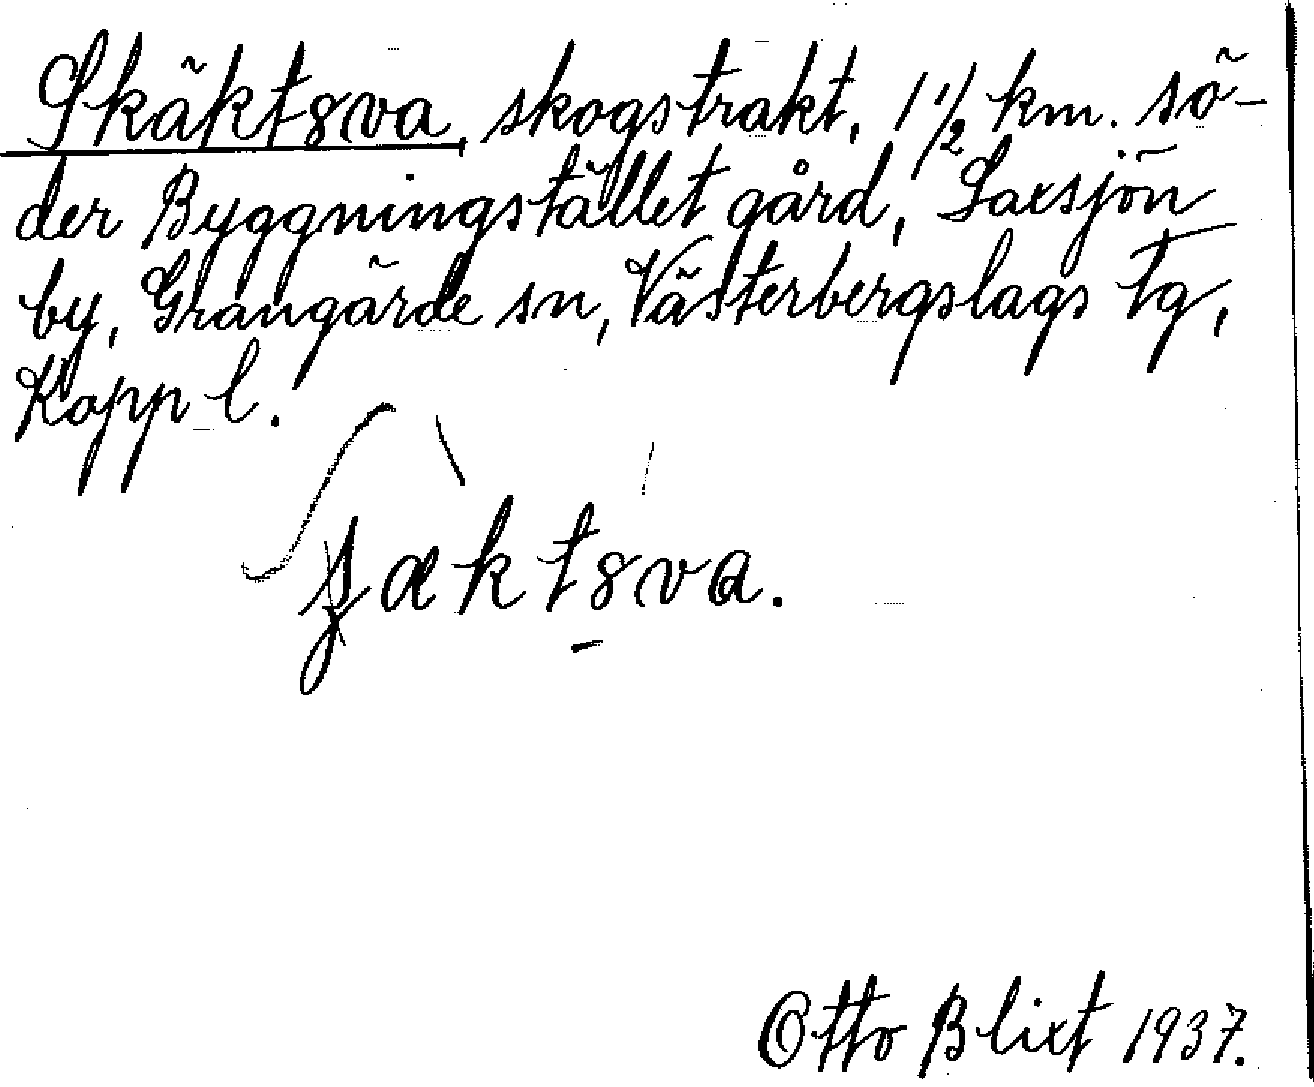 Skäktsva, skogstrakt, 1 1/2 km. sö-
der Byggningstället gård, Saxsjön
by, Grangärde sn, Västerbergslags tg,
Kopp l.
Otto Blixt 1937.